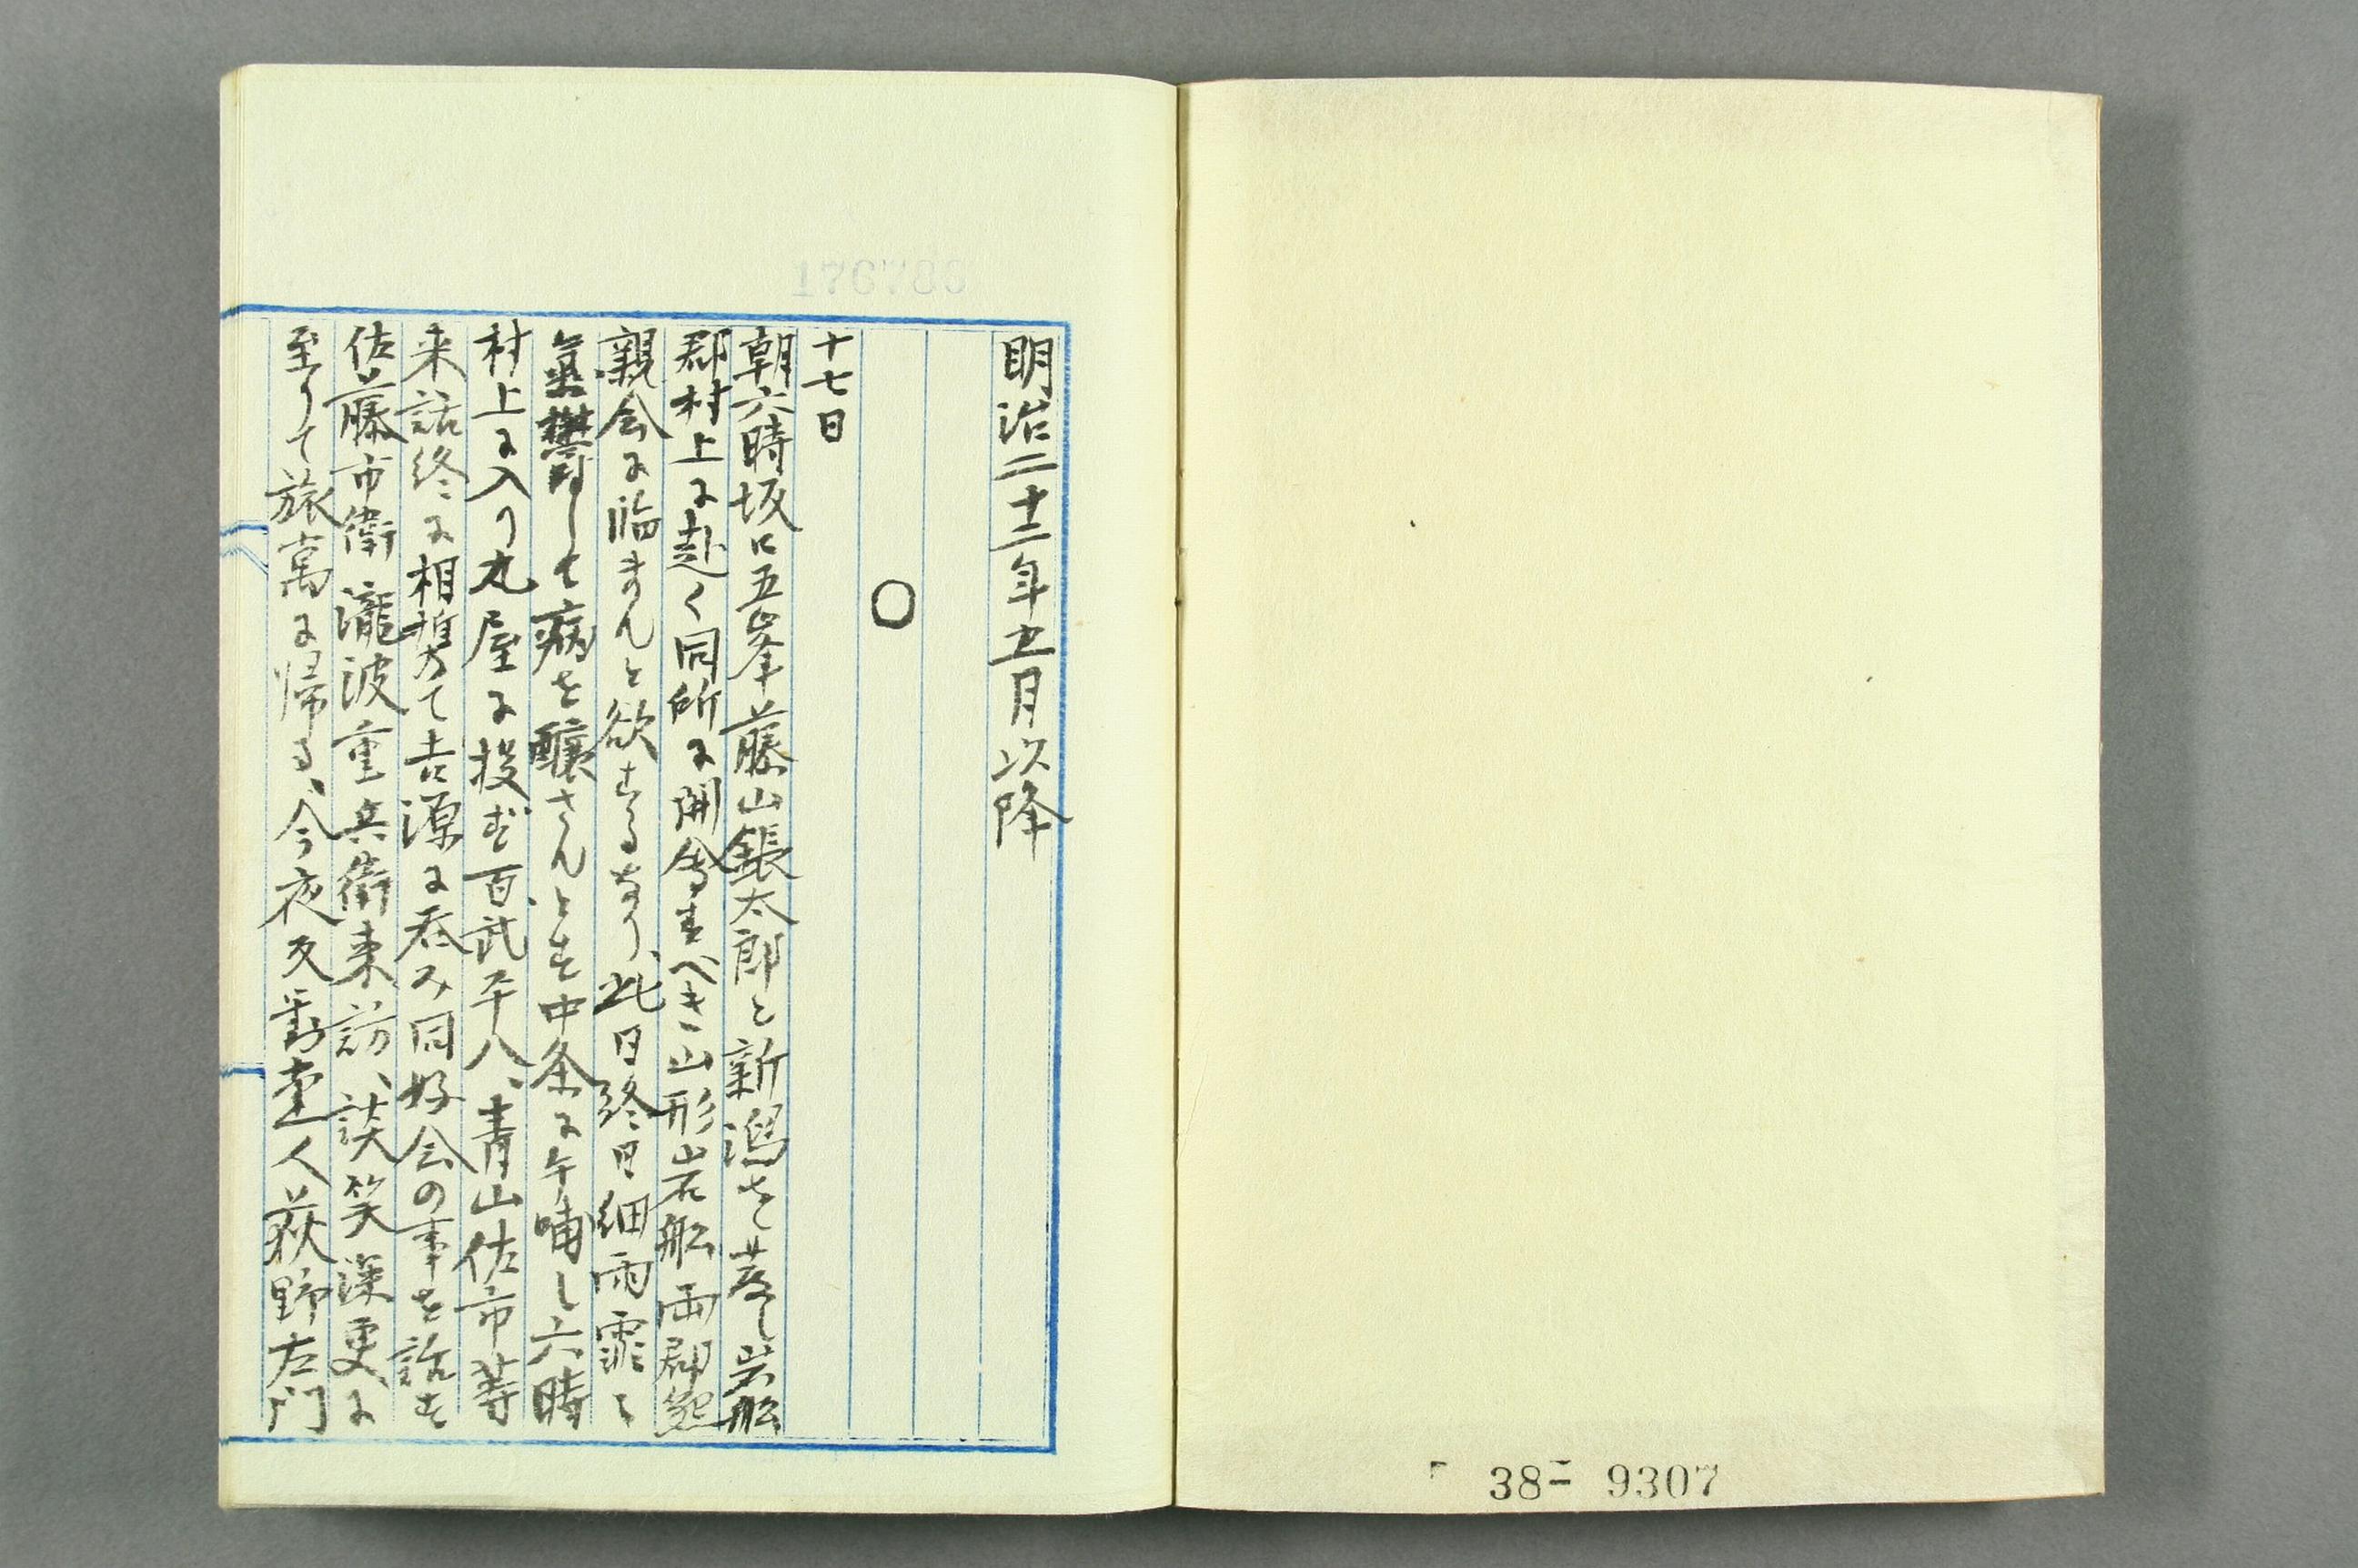 明治二十二年五月以降
○
十七日
朝六時坂口五峯藤山鋹太郎と新潟を発し岩船
郡村上に赴く同所に開会すべき山形岩船両郡懇
親会に臨まんと欲するなり、此日終日細雨霏々
気鬱して病を醸さんとす中条に午哺し六時
村上に入り丸屋に投ず百武平八、青山佐市等
来話終に相携て吉源に呑み同好会の事を話す
佐藤市衛瀧波重兵衛来訪、談笑深更に
至りて旅寓に帰る、今夜反対党人荻野左門
176786
38- 9307